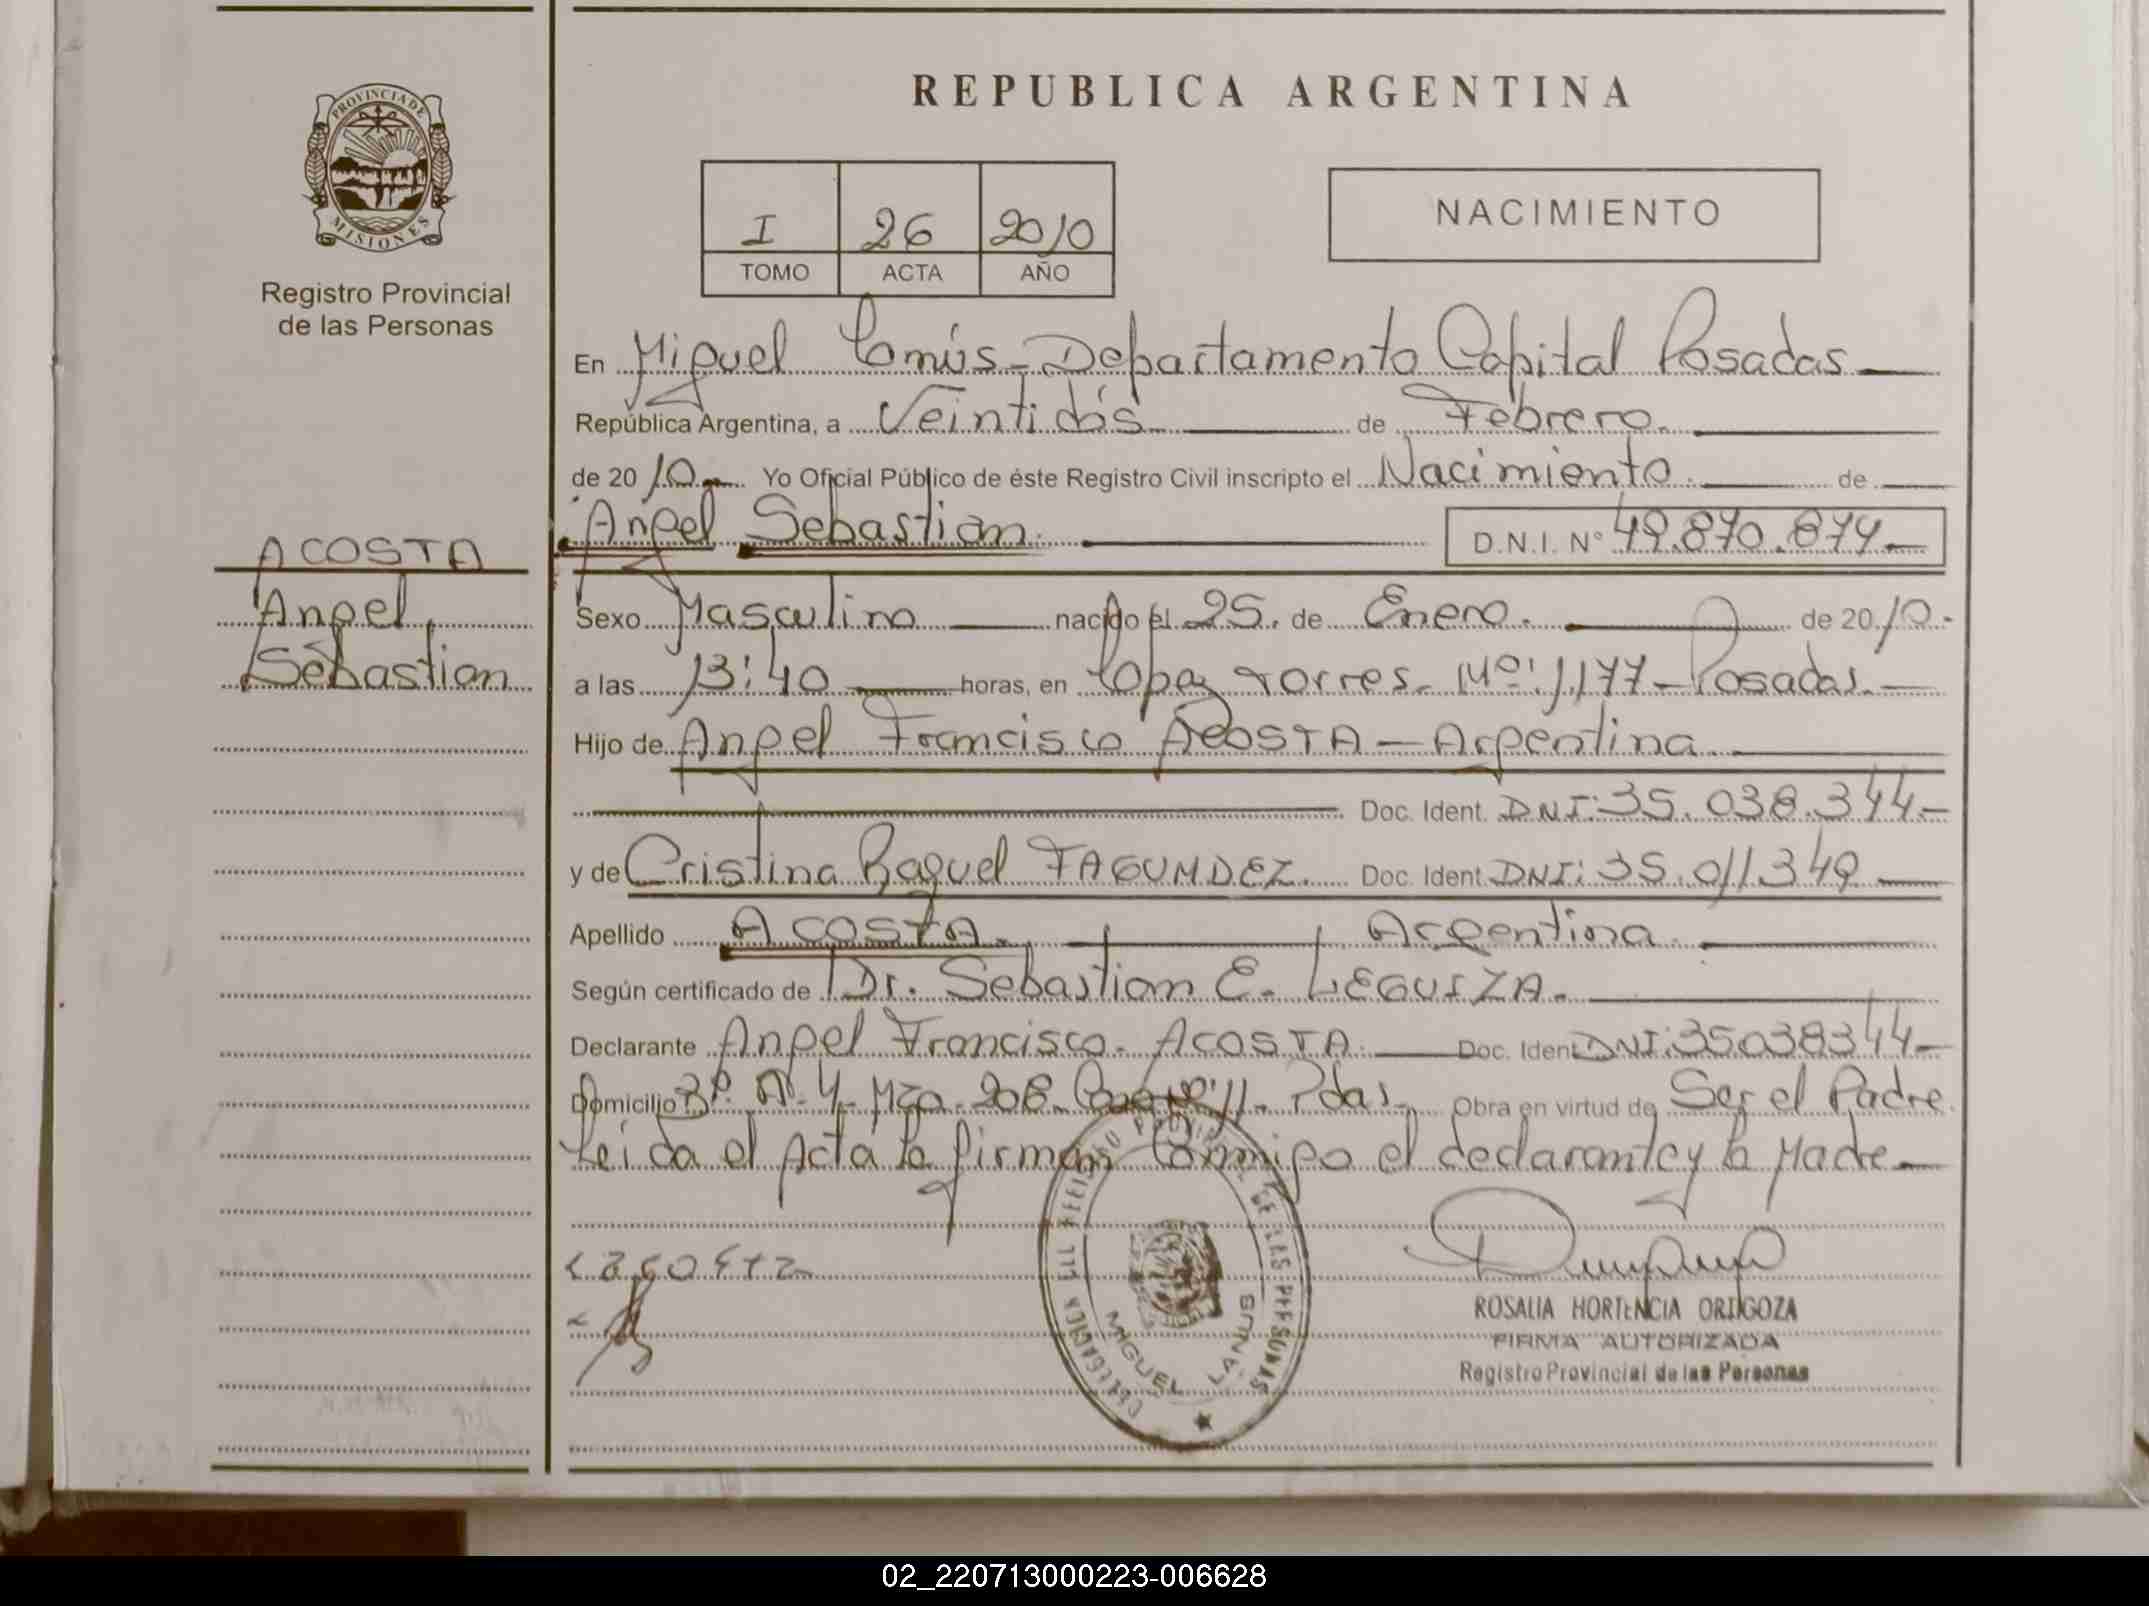 REPUBLICA ARGENTINA
PROVINCIA DE
MISIONES
Registro Provincial
de las Personas
I 26 2010
TOMO ACTA AÑO
NACIMIENTO
En Miguel Lanús - Departamento Capital Posadas
República Argentina, a Veintidós de Febrero.
de 2010 Yo Oficial Público de éste Registro Civil inscripto el Nacimiento de
Angel Sebastian. D.N.I. N° 49.870.874
ACOSTA
Angel
Sebastian
Sexo Masculino nacido el 25. de Enero. de 2010.
a las 13:40 horas, en Lopez Torres. Nº: 1177 - Posadas.
Hijo de Angel Francisco ACOSTA - Argentina.
Doc. Ident. DNI: 35.038.344
y de Cristina Raquel FAGUNDEZ. Doc. Ident. DNI: 35.011.349
Apellido ACOSTA. Argentina.
Según certificado de Dr. Sebastian E. LEGUIZA.
Declarante Angel Francisco. ACOSTA. Doc. Ident DNI: 35038344
Domicilio Bº. Aº. 4. Mza. 208. Casa Nº: 11. Pdas. Obra en virtud de Ser el Padre
Leida el Acta la firman conmigo el declarante y la Madre
DELEGACION REGISTRO PROVINCIAL DE LAS PERSONAS
MIGUEL LANUS
ROSALIA HORTENCIA ORTIGOZA
FIRMA AUTORIZADA
Registro Provincial de las Personas
02_220713000223-006628